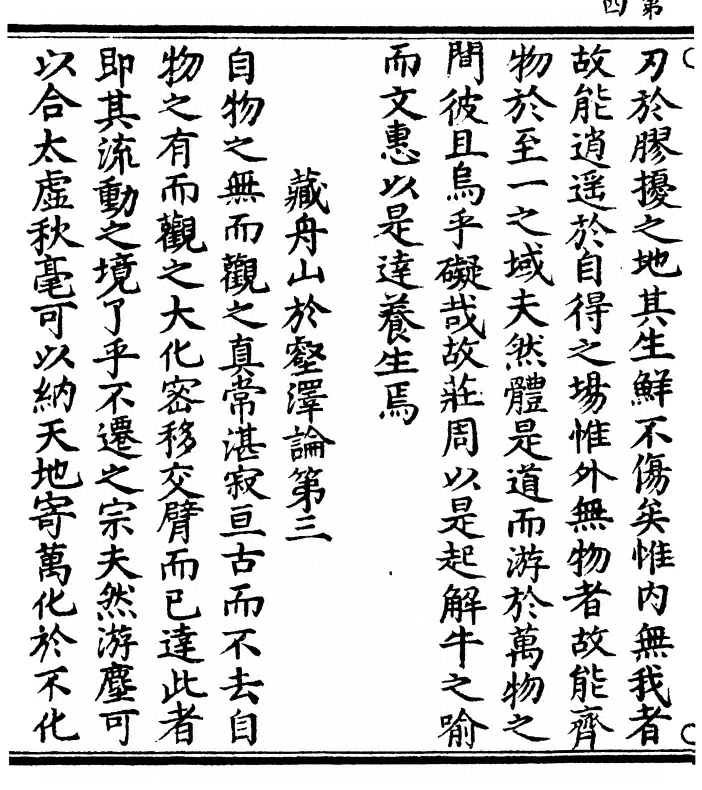 第
四
刃於膠擾之地其生鮮不傷矣惟内無我者
故能逍遥於自得之場惟外無物者故能齊
物於至一之域夫然體是道而游於萬物之
間彼且烏乎礙哉故莊周以是起解牛之喻
而文惠以是達養生焉
藏舟山於壑澤論第三
自物之無而觀之真常湛寂亘古而不去自
物之有而觀之大化密移交臂而已達此者
即其流動之境了乎不遷之宗夫然游塵可
以合太虛秋毫可以納天地寄萬化於不化